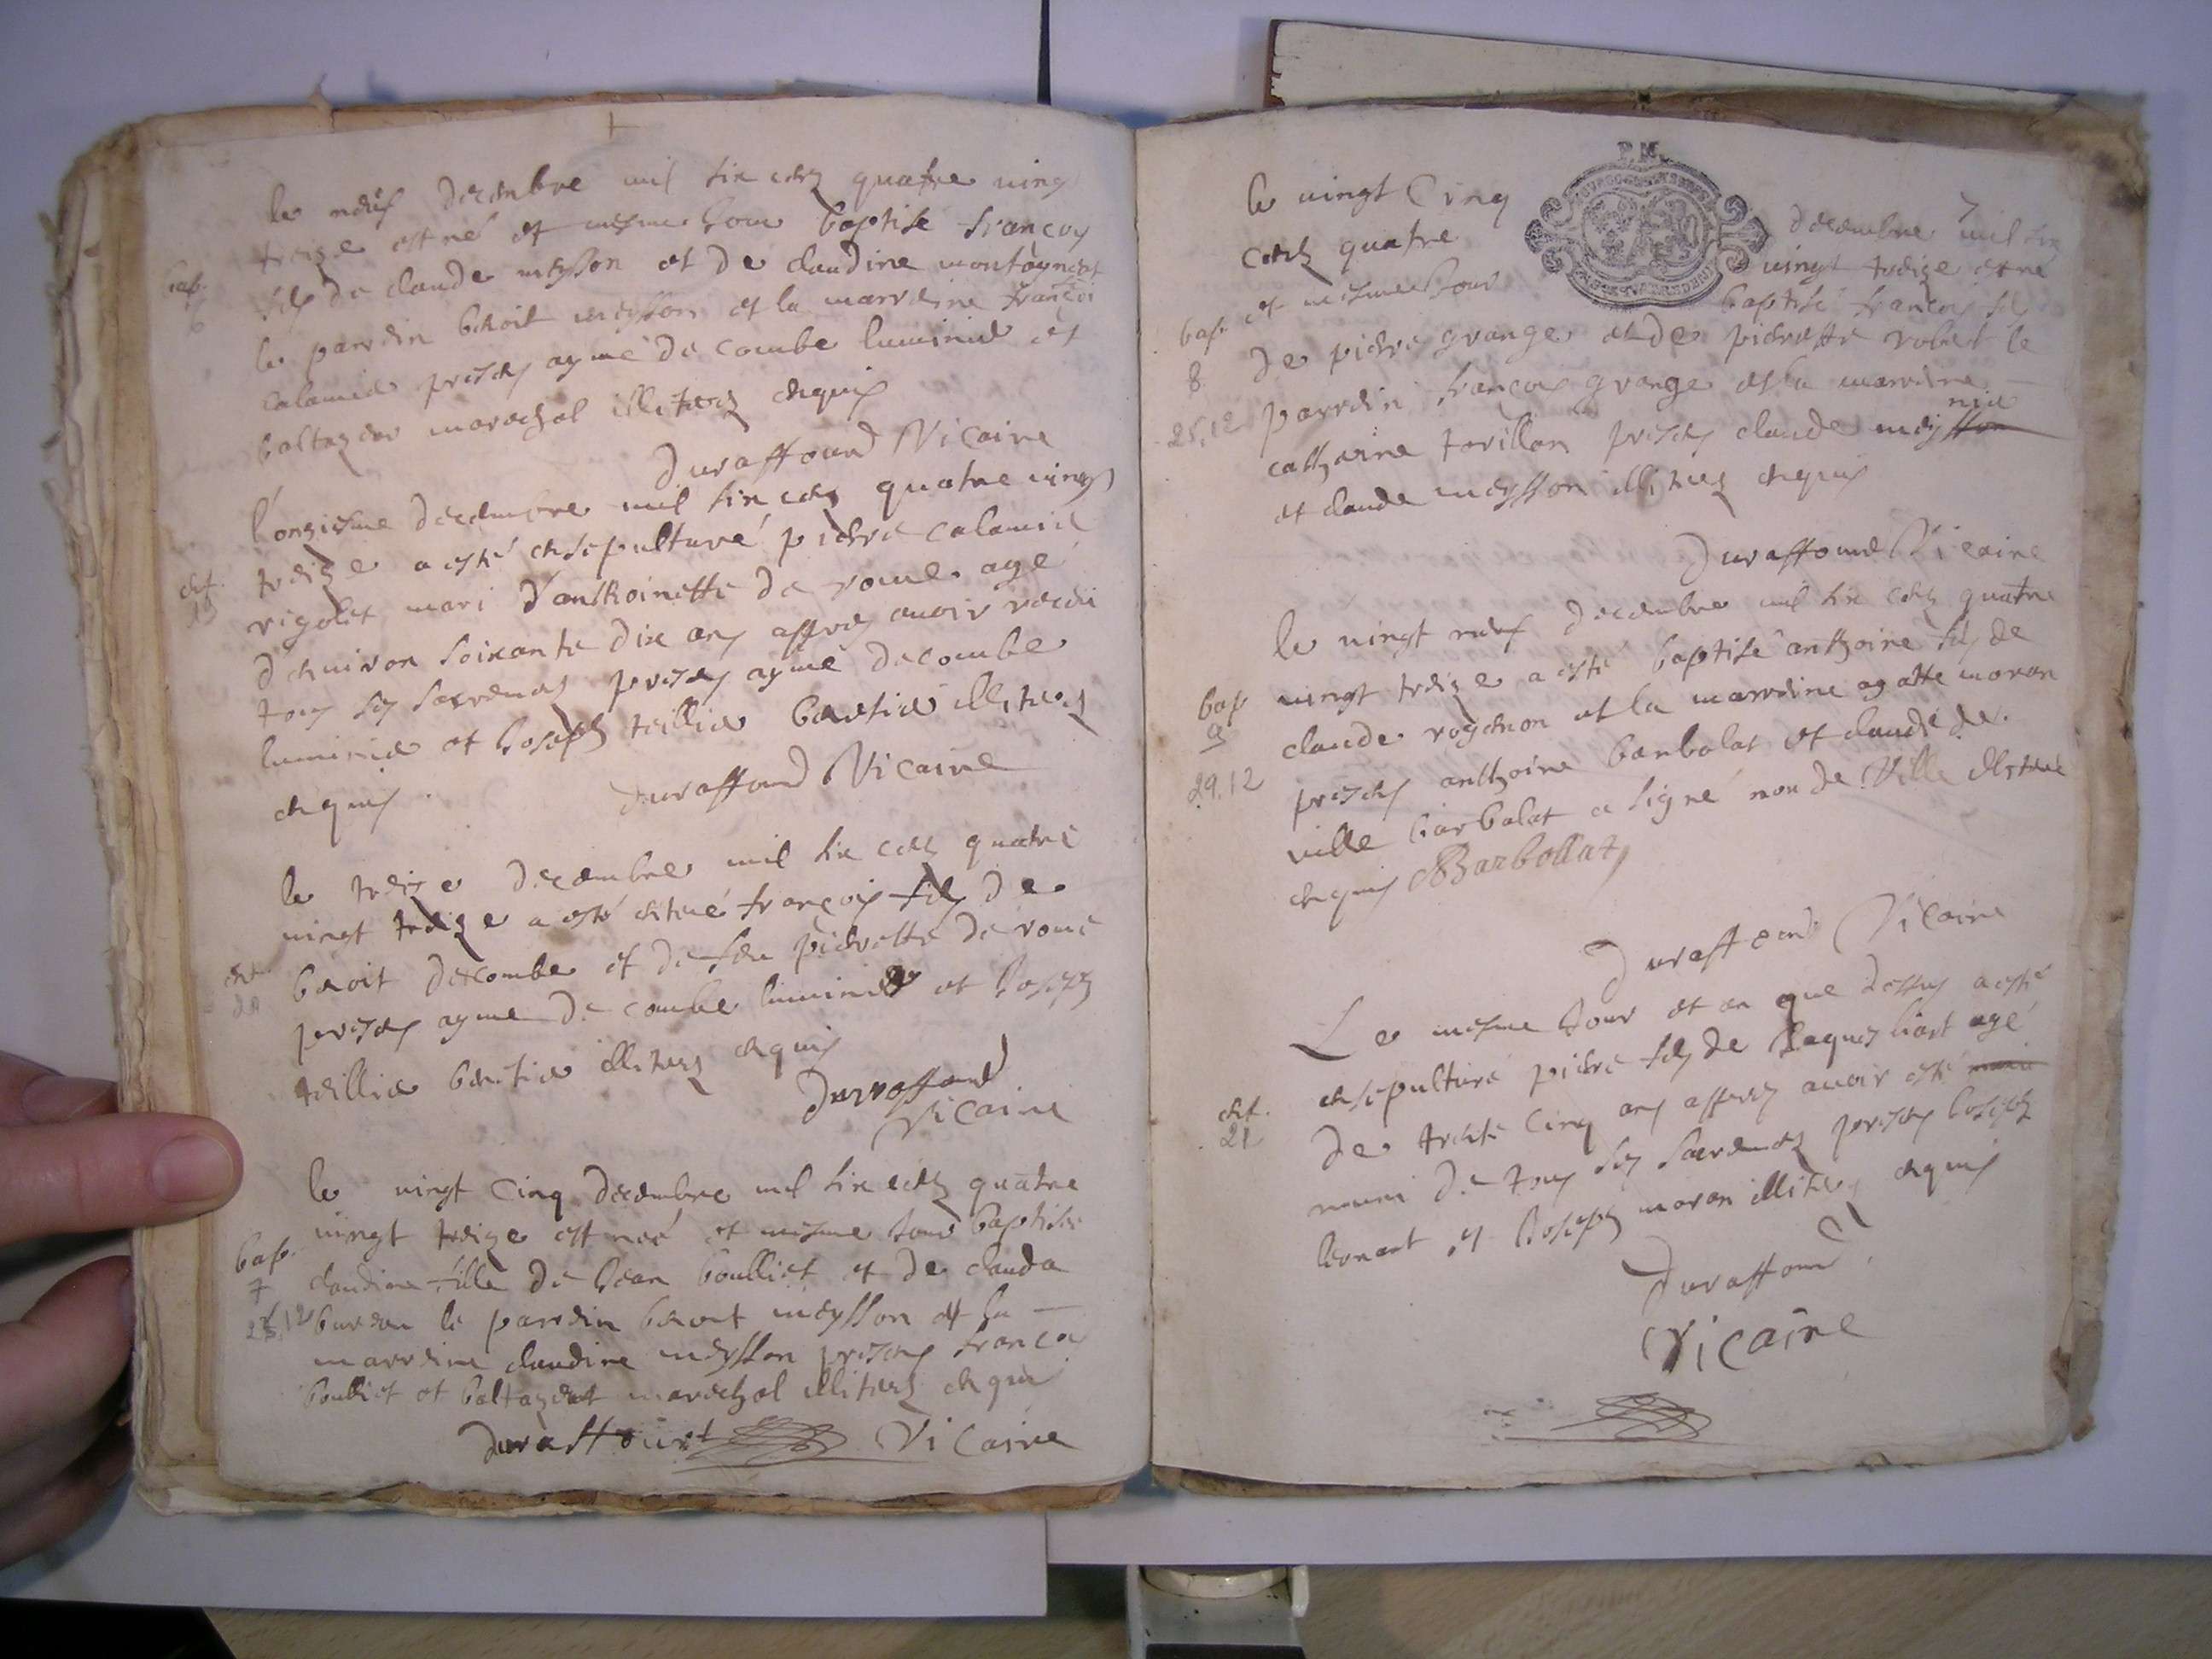 le neuf decembre mil six cens quatre ving
treize est né et mesme jour baptise francoy
bap.
6
fils de claude meysson et de claudine montagneat
le parrein benoit meysson et la marreine francoi
calamie presens aymé decombe luminie et
baltazar marechal illiteres enquis
Duraffourd Vicaire
l'onziesme decembre mil six cens quatre vings
treize a esté ensepulturé pierre calamie
ent.
19
rigolet mari d'anthoinette de rome agé
d'environ soixante dix ans appres avoir receu
tous ses sacremens presens aymé decombe
luminie et Joseph teillie benetie illiteres
enquis.
Duraffourd Vicaire
le treize decembre mil six cens quatre
vingt treize a esté enterré françois fils de
ent.
20
benoit decombe et de feu pierrette de rome
presens ayme decombe luminie et Joseph
teillie benetie illiteres enquis
Durraffourd
Vicaire
le vingt cinq decembre mil six cens quatre
vingt treize est née et mesme jour baptisée
bap.
7
25.12
claudine fille de Jean boulliet et de clauda
burdin le parrein benoit meysson et la
marreine claudine meysson presens francoy
boulliet et baltazart marechal illiteres enquis
Duraffourt Vicaire
P.M.
7
le vingt Cinq decembre mil six
cens quatre vingt treize est né
et mesme Jour baptisé francois fils
bap.
8
25.12
de pierre grange et de pierrette robert le
parrein francois grange et la marreine
catherine tarillon presens claude meysson
nie
et claude meysson illiteres enquis
Duraffourd Vicaire
le vingt neuf decembre mil six cens quatre
vingt treize a esté baptisé anthoine fils de
bap
9
29.12
claude rognon et la marreine agatte moron
presens anthoine barbolat et claude de
ville barbolat a signé non de Ville illiteré
enquis Barbollat
Duraffourd Vicaire
Le mesme Jour et an que dessus a esté
ensepulturé pierre fils de Jaques liart agé
ent.
21
de trente cinq ans appres avoir esté muni
muni de tous ses sacremens presens Joseph
leonart et Joseph moron illiteres enquis
Duraffourd
Vicaire